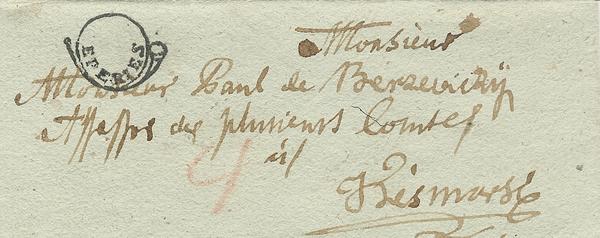 EPERIES
Monsieur
Monsieur Paul de Berzeviczÿ
Assessor de plusieurs Comtes
à
Késmark
4